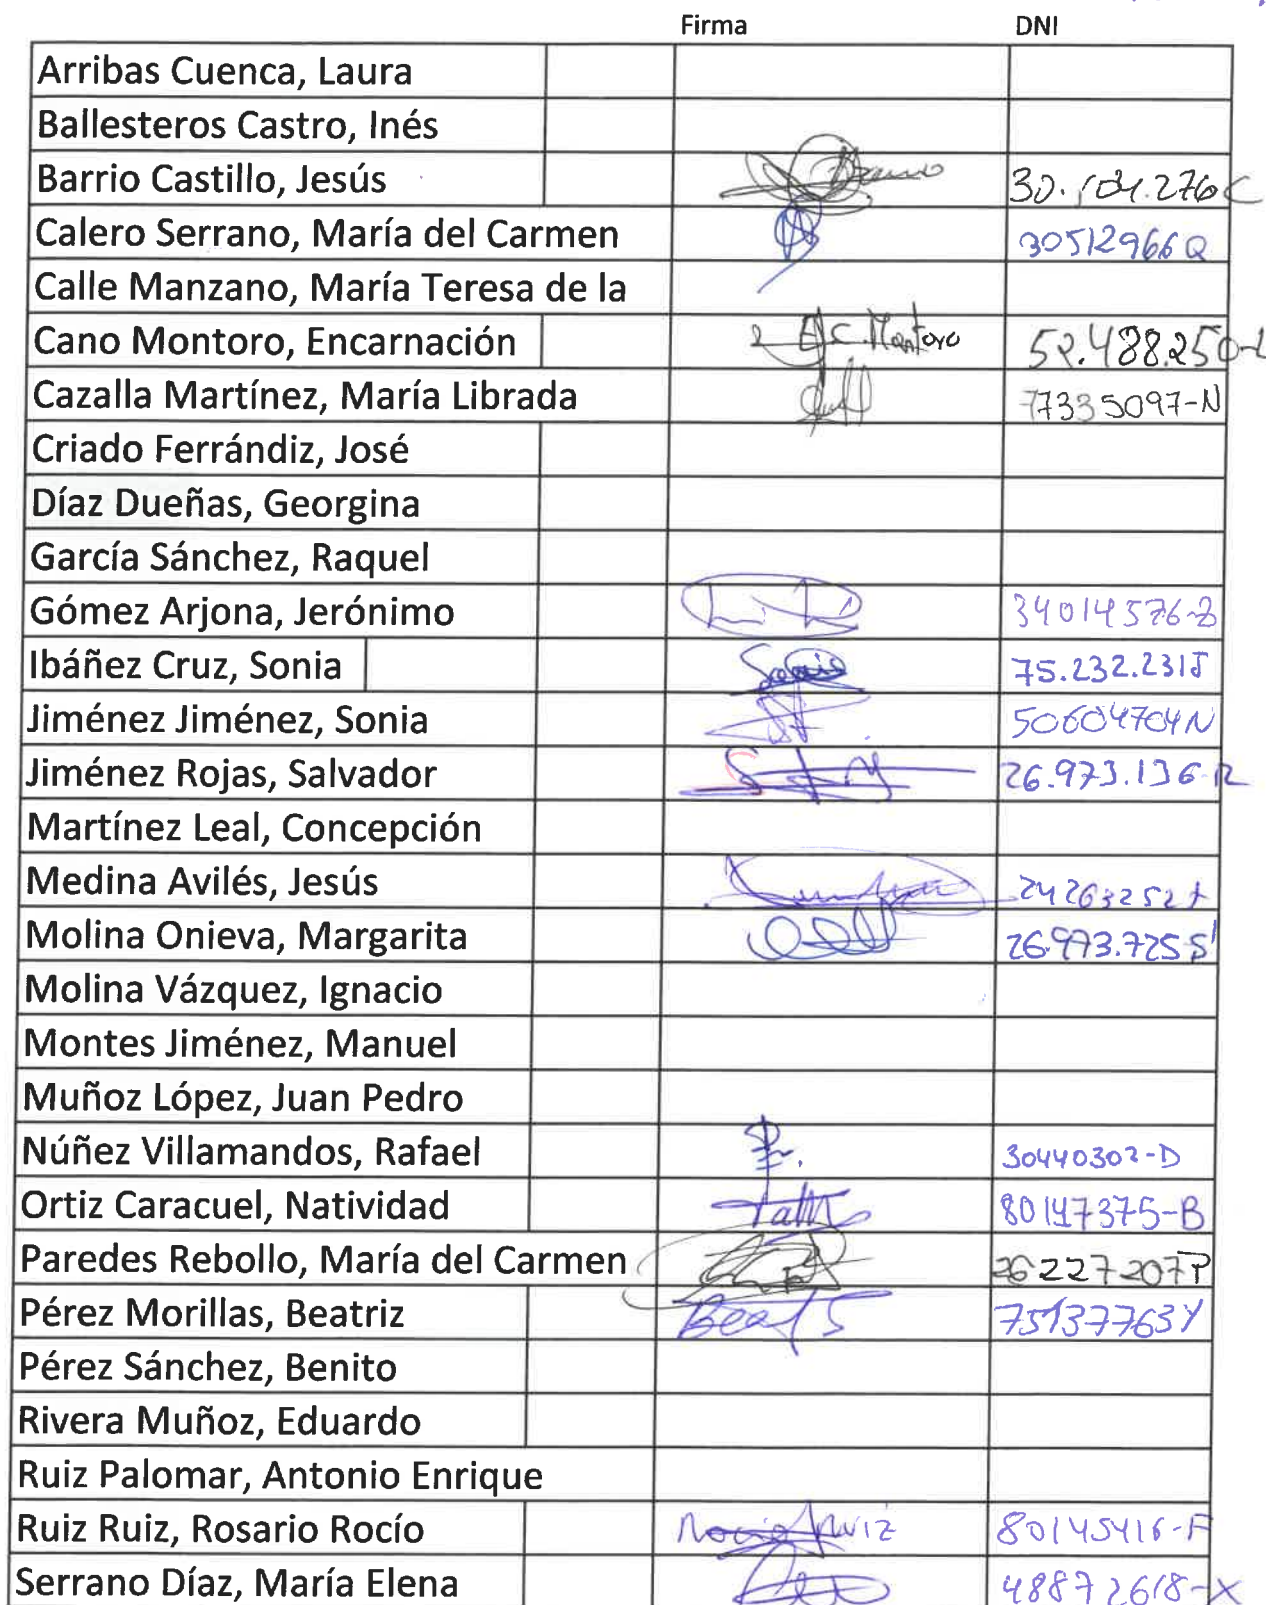 Firma DNI
Arribas Cuenca, Laura
Ballesteros Castro, Inés
Barrio Castillo, Jesús
Calero Serrano, María del Carmen 30512966Q
Calle Manzano, María Teresa de la
Cano Montoro, Encarnación E.C. Montoro 52.488.250-L
Cazalla Martínez, María Librada 77335097-N
Criado Ferrándiz, José
Díaz Dueñas, Georgina
García Sánchez, Raquel
Gómez Arjona, Jerónimo
Ibáñez Cruz, Sonia Sonia 75.232.231J
Jiménez Jiménez, Sonia 50604704N
Jiménez Rojas, Salvador 26.973.136-R
Martínez Leal, Concepción
Medina Avilés, Jesús
Molina Onieva, Margarita 26.973.725S
Molina Vázquez, Ignacio
Montes Jiménez, Manuel
Muñoz López, Juan Pedro
Núñez Villamandos, Rafael 30440302-D
Ortiz Caracuel, Natividad 80147375-B
Paredes Rebollo, María del Carmen 26227207P
Pérez Morillas, Beatriz 75137763Y
Pérez Sánchez, Benito
Rivera Muñoz, Eduardo
Ruiz Palomar, Antonio Enrique
Ruiz Ruiz, Rosario Rocío Rocío Ruiz 80145416-F
Serrano Díaz, María Elena 48872618-X